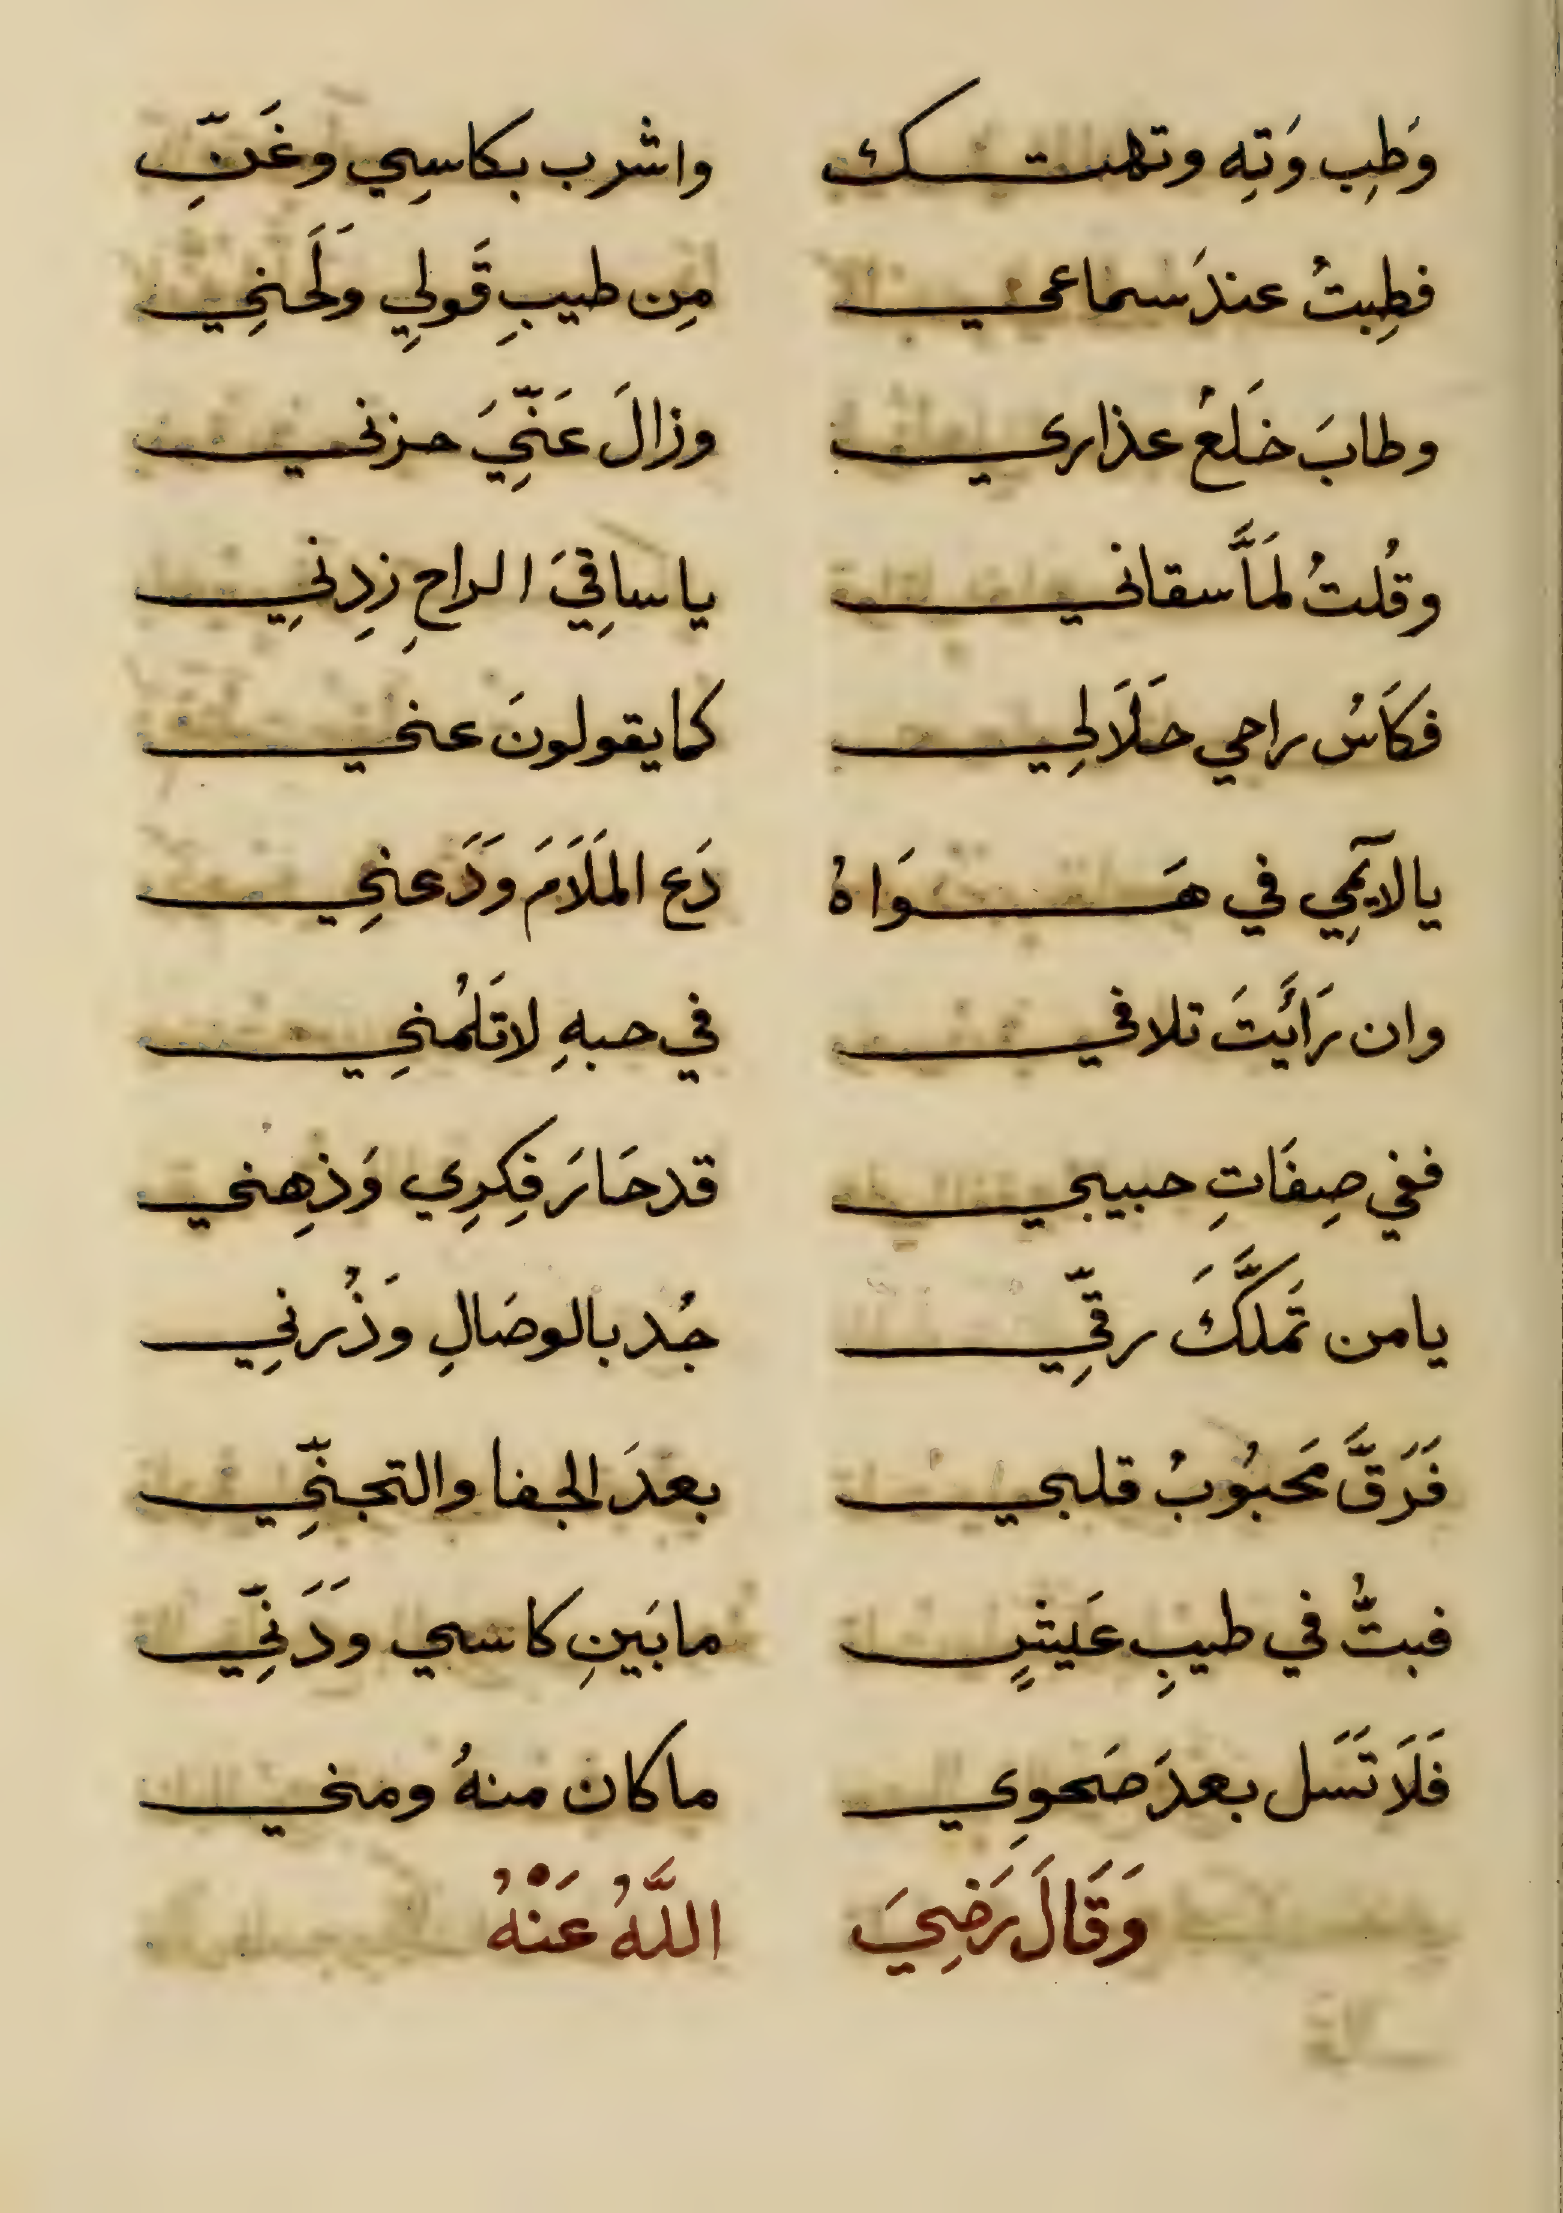 وَطِب وَتِه وتهتك واشرب بكاسِي وغَنِّ
فطِبتُ عندَ سماعي مِن طيبِ قَولِي وَلَحَنِي
وطابَ خلَعُ عذاري وزالَ عَنِّيَ حزني
وقُلتُ لمَّا سقاني يا ساقِيَ الراحِ زِدنِي
فكَاَسُ راحي حَلَالِي كما يقولونَ عني
يا لآيمِي في هَوَاهُ دَع المَلَامَ وَدَعنِي
وان رَاَيَتَ تلافي في حبهِ لا تَلُمنِي
ففي صِفَاتِ حبيبي قد حَارَ فِكرِي وَذِهني
يا من تَملَّكَ رقِّي جُد بالوصَالِ وَذُرنِي
فَرَقَّ مَحبُوبُ قلبي بعدَ الجفا والتجنِّي
فبتُّ في طيبِ عَيشٍ ما بَينِ كاسي وَدَنِّي
فَلَا تَسَل بعدَ صَحوِي ما كان منهُ ومني
وَقَالَ رَضِيَ اللَّهُ عَنْهُ